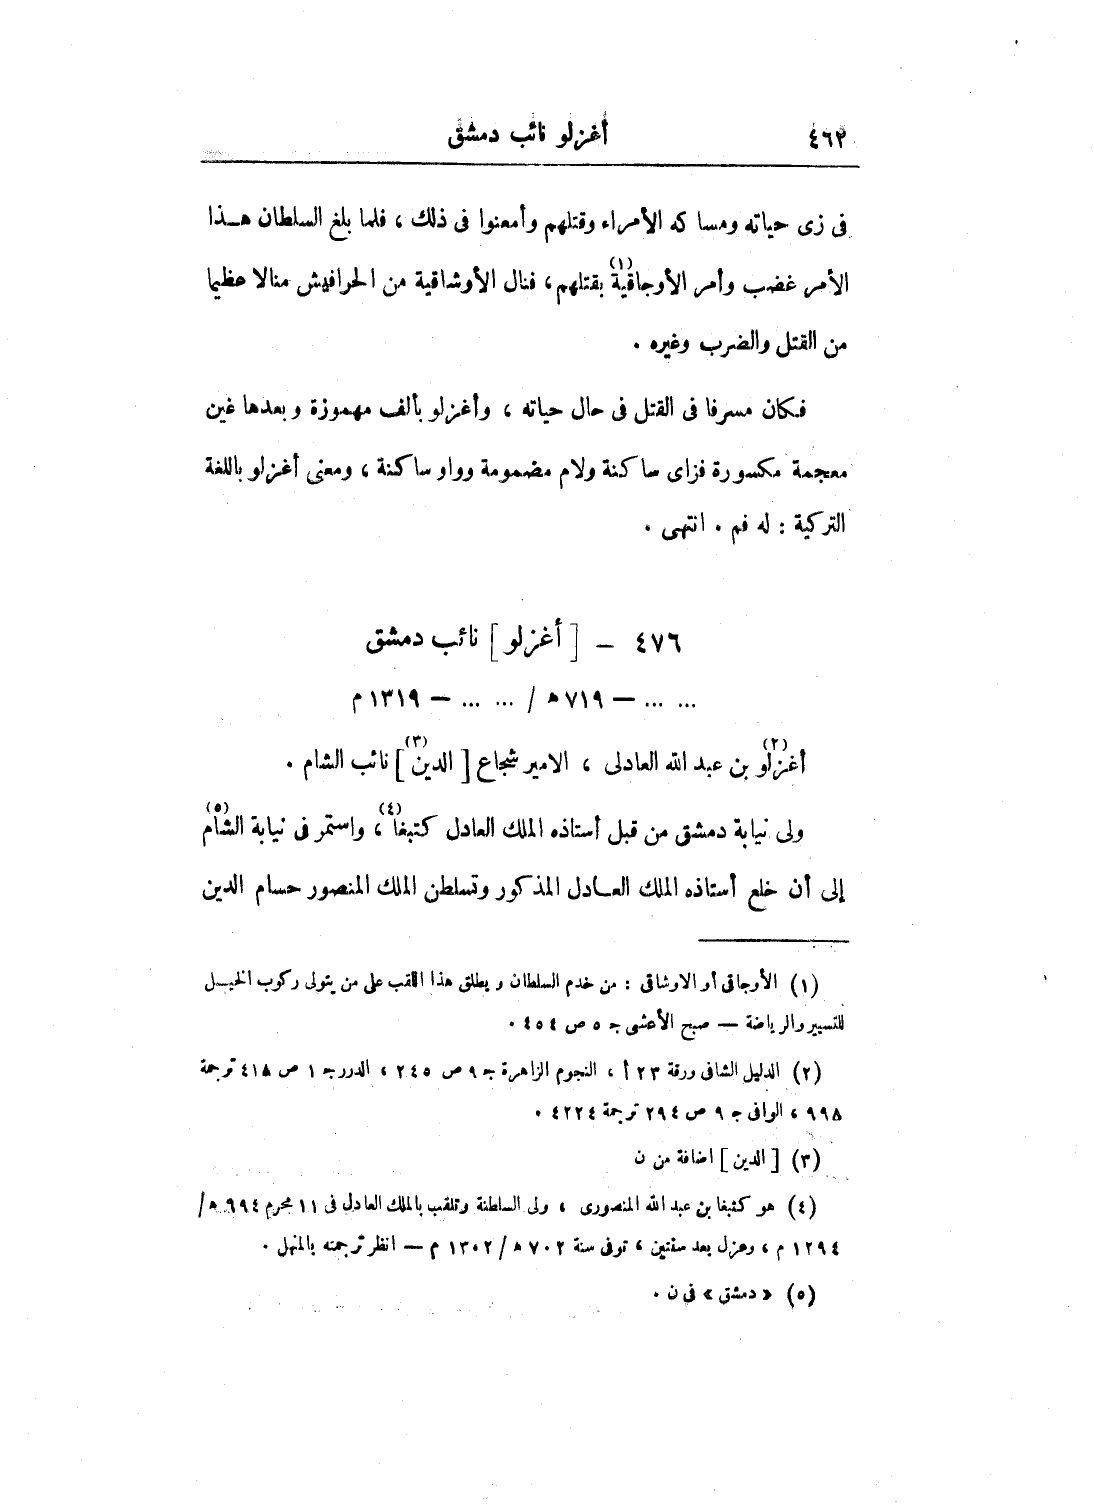 ٤٦٢ أغزلو نائب دمشق
فى زى حياته ومساكه الأمراء وقتلهم وأمعنوا فى ذلك ، فلما بلغ السلطان هـذا
الأمر غضب وأمر الأوجاقية (١) بقتلهم ، فنال الأوشاقية من الحرافيش منالا عظيما
من القتل والضرب وغيره .
فكان مسرفا فى القتل فى حال حياته ، وأغزلو بألف مهموزة وبعدها غين
معجمة مكسورة فزاى ساكنة ولام مضمومة وواو ساكنة ، ومعنى أغزلو باللغة
التركية : له فم . انتهى .
٤٧٦ – [ أغزلو ] نائب دمشق
... ... – ٧١٩ ه / ... ... – ١٣١٩ م
أغزلو (٢) بن عبد الله العادلى ، الامير شجاع [ الدين (٣) ] نائب الشام .
ولى نيابة دمشق من قبل أستاذه الملك العادل كتبغا (٤) ، واستمر فى نيابة الشام (٥)
إلى أن خلع أستاذه الملك العـادل المذكور وتسلطن الملك المنصور حسام الدين
(١) الأوجاقى أو الاوشاقى : من خدم السلطان ويطلق هذا اللقب على من يتولى ركوب الخيـل
للتسيير والرياضة – صبح الأعشى جـ ٥ ص ٤٥٤ .
(٢) الدليل الشافى ورقة ٢٣ أ ، النجوم الزاهرة جـ ٩ ص ٢٤٥ ، الدرر جـ ١ ص ٤١٨ ترجمة
٩٩٨ ، الوافى جـ ٩ ص ٢٩٤ ترجمة ٤٢٢٤ .
(٣) [ الدين ] اضافة من ن
(٤) هو كتبغا بن عبد الله المنصورى ، ولى السلطنة وتلقب بالملك العادل فى ١١ محرم ٦٩٤ ه /
١٢٩٤ م ، وعزل بعد سنتين ، توفى سنة ٧٠٢ ه / ١٣٠٢ م – انظر ترجمته بالمنهل .
(٥) « دمشق » فى ن .